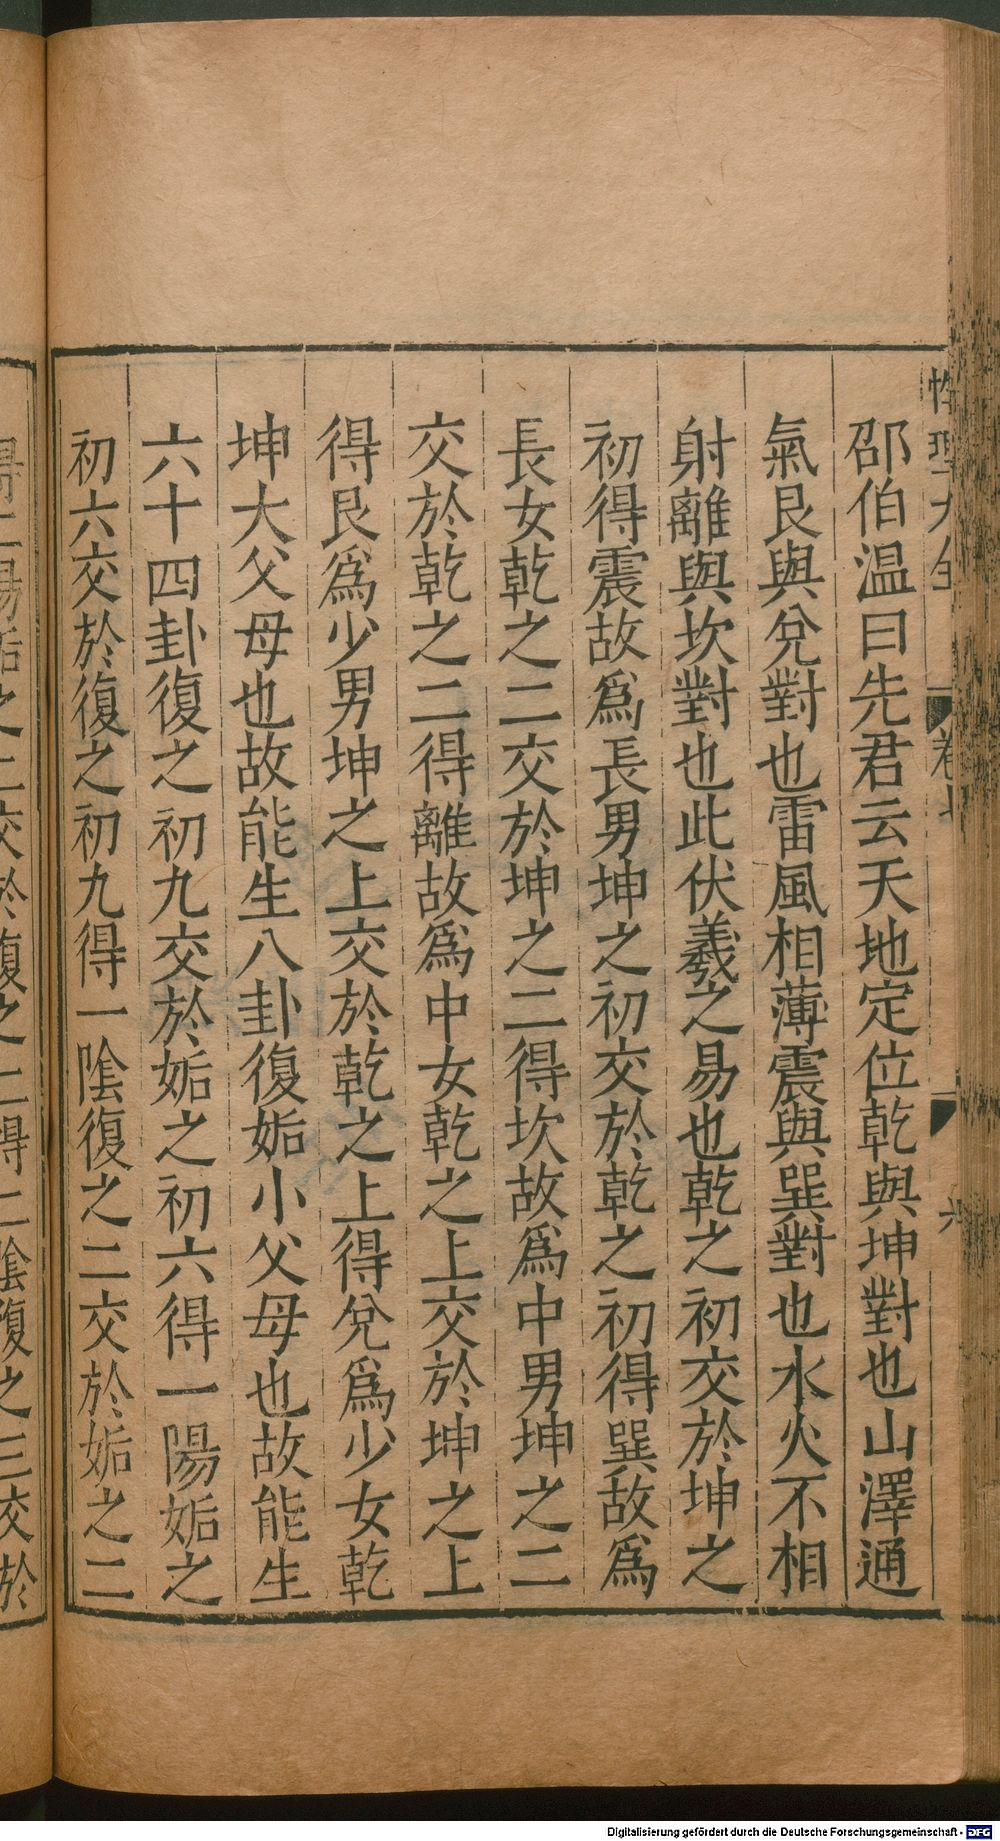 邵伯温曰先君云天地定位乾與坤對也山澤通
氣艮與兌對也雷風相薄震與巽對也水火不相
射離與坎對也此伏羲之易也乾之初交於坤之
初得震故爲長男坤之初交於乾之初得巽故爲
長女乾之二交於坤之二得坎故爲中男坤之二
交於乾之二得離故爲中女乾之上交於坤之上
得艮爲少男坤之上交於乾之上得兌爲少女乾
坤大父母也故能生八卦復姤小父母也故能生
六十四卦復之初九交於姤之初六得一陽姤之
初六交於復之初九得一陰復之二交於姤之二
得二陽姤之二交於復之二得二陰復之三交於
性理大全 卷七 六
Digitalisierung gefördert durch die Deutsche Forschungsgemeinschaft - DFG